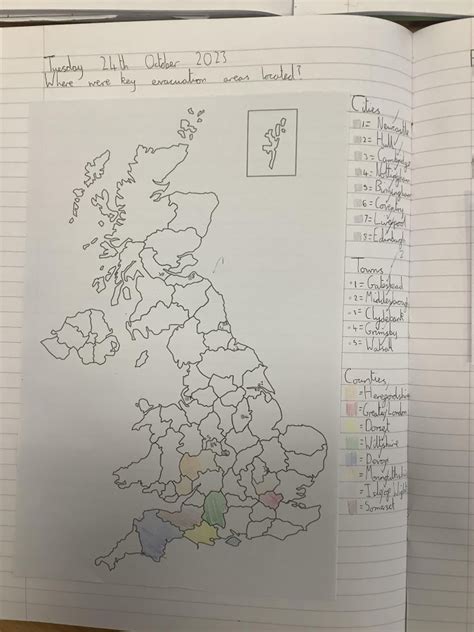 Tuesday 24th October 2023
Where were key evacuation areas located?
Cities
1 = Newcastle
2 = Hull
3 = Cambridge
4 = Nottingham
5 = Birmingham
6 = Coventry
7 = Liverpool
8 = Edinburgh
Towns
1 = Gateshead
2 = Middlesbrough
3 = Clydebank
4 = Grimsby
5 = Walsall
Counties
= Herefordshire
= Greater London
= Dorset
= Wiltshire
= Devon
= Monmouthshire
Isle of Wight
= Somerset